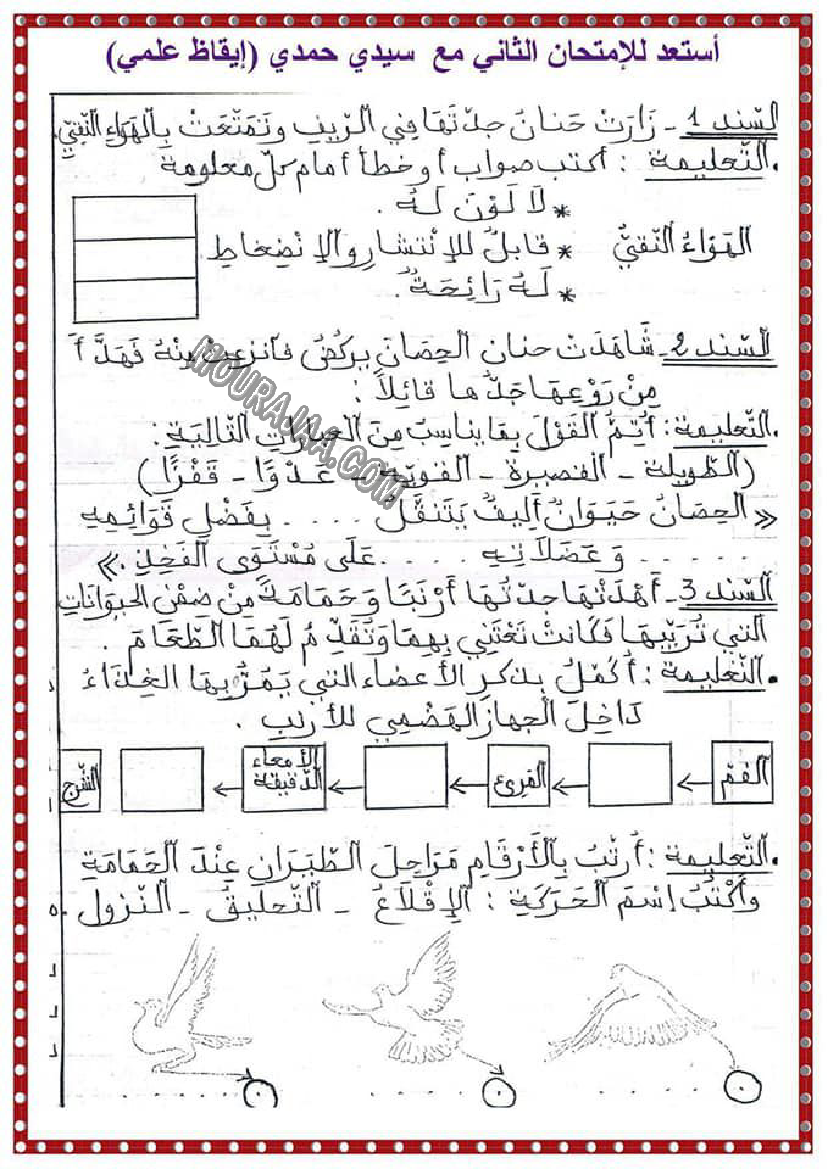 أستعد للإمتحان الثاني مع سيدي حمدي (إيقاظ علمي)
السّند 1 - زَارَتْ حَنانُ جدّتَهَا فِي الرّيفِ وتَمَتّعَتْ بِالهَوَاءِ النّقِيّ.
. التّعليمة : أكتب صواب أو خطأ أمام كلّ معلومة
* لَا لَوْنَ لَهُ .
الهَوَاءُ النّقيُّ * قابلٌ للاِنْتشارِ والاِنْضِغاطِ
* لَهُ رَائِحَةٌ .
السّند 2 - شَاهَدَتْ حنان الحِصَانَ يركُضُ فانزعجت مِنْهُ فَهَدَّأ
مِنْ رَوْعِهَا جَدُّها قائِلاً :
. التّعليمة : أُتِمُّ القَوْلَ بِمَا يناسِبُ مِنَ العبارَاتِ التّالِيَةِ :
(الطّويلة - القصيرة - القويّة - عَدْوًا - قَفْزًا)
« الحِصَانُ حَيَوَانٌ أليفٌ يَتَنَقّلُ .... بِفَضْلِ قَوَائِمِهِ
...... وَعَضَلَاتِهِ ..... عَلَى مُسْتَوَى الفَخِذِ . »
السّند 3 - أَهْدَتْهَا جدّتُهَا أَرْنَبًا وَحَمَامَةً مِنْ ضمْنِ الحيوَانَاتِ
التي تُرَبِّيهَا فَكَانَتْ تَعْتَنِي بِهِمَا وَتُقَدِّمُ لَهُمَا الطّعَامَ .
. التّعليمة : أُكمّلُ بذكرِ الأعضاء التي يَمُرُّ بِهَا الغِذَاءُ
دَاخِلَ الجهازِ الهَضْمِي للأرنب .
الفَمُ ← ← المَرِيءُ ← ← الأمعاء الدّقيقة ← الشّرج
. التّعليمة : أُرتّبُ بِالأَرْقَامِ مَرَاحِلَ الطّيَرَانِ عِنْدَ الحَمَامَةِ
وأَكْتُبُ إسْمَ الحَرَكَةِ : الإِقْلَاعُ - التّحليقُ - النّزول .
MOURAJAA.COM